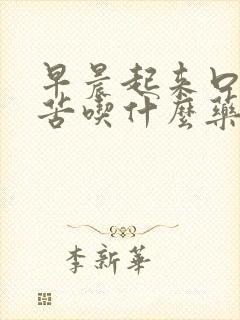 早晨起来口
苦喫什麼藥
李新華